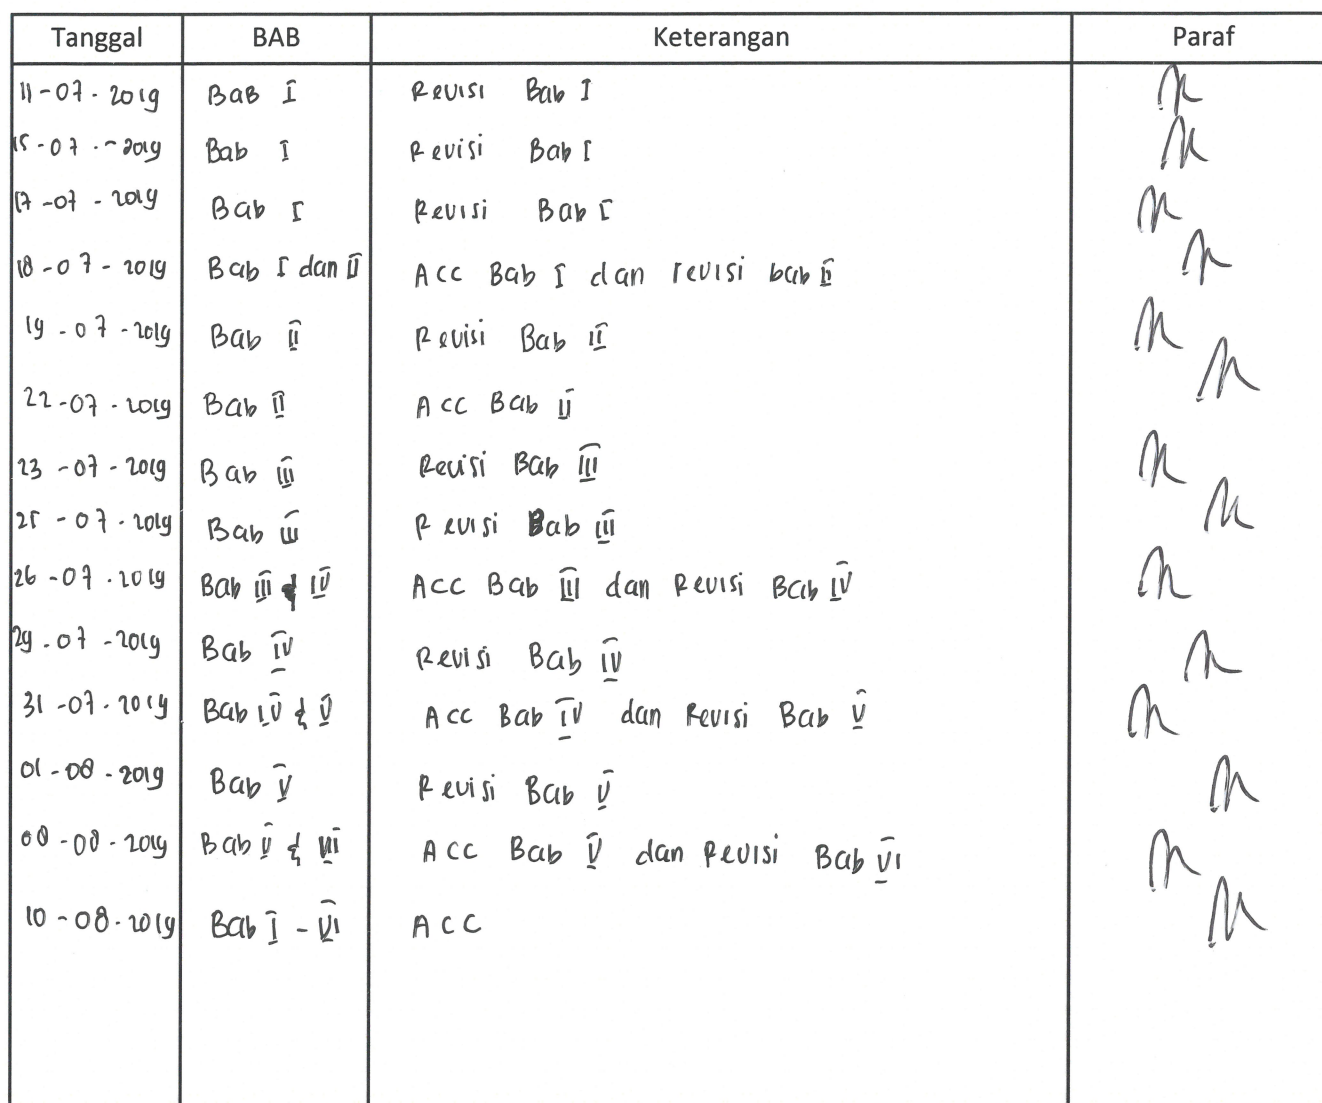 Tanggal BAB Keterangan Paraf
11-07-2019 BaB I Revisi Bab I
15-07-2019 Bab I Revisi Bab I
17-07-2019 Bab I Revisi Bab I
18-07-2019 Bab I dan II Acc Bab I dan revisi bab II
19-07-2019 Bab II Revisi Bab II
22-07-2019 Bab II Acc Bab II
23-07-2019 Bab III Revisi Bab III
25-07-2019 Bab III Revisi Bab III
26-07-2019 Bab III & IV Acc Bab III dan Revisi Bab IV
29-07-2019 Bab IV Revisi Bab IV
31-07-2019 Bab IV & V Acc Bab IV dan Revisi Bab V
01-08-2019 Bab V Revisi Bab V
08-08-2019 Bab V & VI Acc Bab V dan Revisi Bab VI
10-08-2019 Bab I - VI ACC